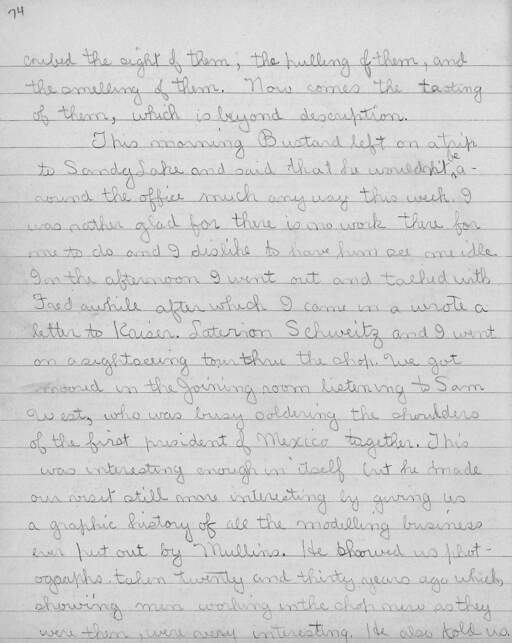 74
cribed the sight of them, the pulling of them, and
the smelling of them. Now comes the tasting
of them, which is beyond description.
This morning Bustard left on a trip
to Sandy Lake and said that he wouldn't be a-
round the office much any way this week. I
was rather glad for there is no work there for
me to do and I dislike to have him see me idle.
In the afternoon I went out and talked with
Fred awhile after which I came in a wrote a
letter to Kaiser Schweitz and I went
on a sightseeing tour thru the shop. We got
moored in the joining room listening to Sam
West, who was busy soldering the shoulders
of the first president of Mexico together. This
was interesting enough in itself but he made
our visit still more interesting by giving us
a graphic history of all the modelling business
ever put out by Mullins. He showed us phot-
ographs taken twenty and thirty years ago which,
showing men working in the shop now as they
were then, were very interesting. He also told us